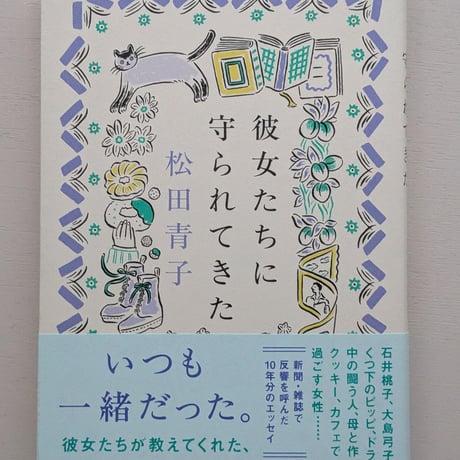 彼女たちに
守られてきた
松田青子
いつも
一緒だった。
彼女たちが教えてくれた、
新聞・雑誌で
反響を呼んだ
10年分のエッセイ
石井桃子、大島弓子
くつ下のピッピ、ドラ
中の闘う人、母と作
クッキー、カフェで
過ごす女性……